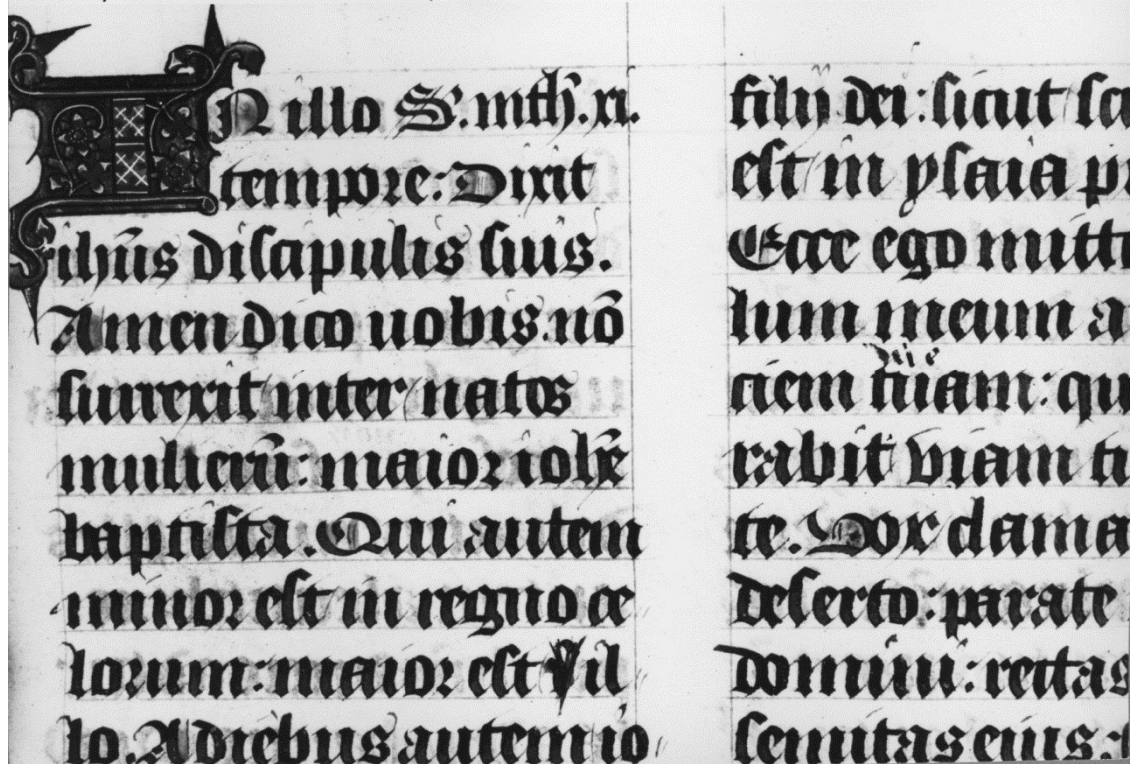 In illo S. mth̄. xi.
tempore: Dixit
ih̄us discipulis suis.
Amen dico uobis. nō
surrexit inter natos
mulierū: maior ioh̄e
baptista. Qui autem
minor est in regno ce
lorum: maior est il
lo. A diebus autem io
filii dei: sicut sc
est in ysaia pr
Ecce ego mitto
lum meum a
ciem tuam: qu
rabit viam tu
te. Vox clama
deserto: parate
domini: rectas
semitas eius: